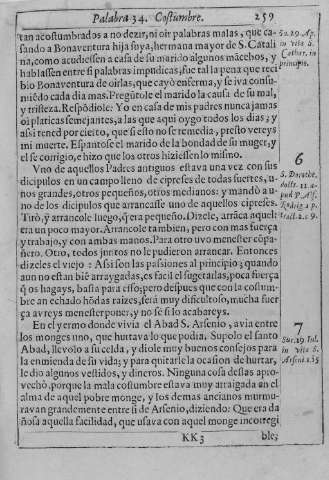 Palabra 34. Costumbre. 259
tan acostumbrados a no dezir, ni oir palabras malas, que ca-
sando a Bonaventura hija suya, hermana mayor de S. Catali
na, como acudiessen a casa de su marido algunos mācebos, y
hablassen entre si palabras impudicas, fue tal la pena que reci
bio Bonaventura de oirlas, que cayò enferma, y se iva consu-
miēdo cada dia mas. Regūtole el marido la causa de su mal,
y tristeza. Respōdiole: Yo en casa de mis padres nunca jamas
oi platicas semejantes, a las que aqui oygo todos los dias; y
assi tened por cierto, que si esto no se remedia, presto vereys
mi muerte. Espantose el marido de la bondad de su muger, y
el se corrigio, e hizo que los otros hiziessen lo mismo.
Vno de aquellos Padres antiguos estava una vez con sus
dicipulos en un campo lleno de cipreses de todas suertes, u-
nos grandes, otros pequeños, otros medianos: y mandò a u-
no de los dicipulos que arrancasse uno de aquellos cipreses.
Tirò, y arrancole luego, q̄ era pequeño. Dizele, arrāca aquel:
era un poco mayor. Arrancole tambien, pero con mas fuerça
y trabajo, y con ambas manos. Para otro uvo menester cōpa-
ñero. Otro, todos juntos no le pudieron arrancar. Entonces
dizeles el viejo: Assi son las passiones al principio; quando
aun no estan biē arraygadas, es facil el sugetarlas; poca fuerça
q̄ os hagays, basta para esso; pero despues que con la costum-
bre an echado hōdas raizes, serà muy dificultoso, mucha fuer
ça avreys menester poner, y no se si lo acabareys.
En el yermo donde vivia el Abad S. Arsenio, avia entre
los monges uno, que hurtava lo que podia. Supolo el santo
Abad, llevolo a su celda, y diole muy buenos consejos para
la enmienda de su vida; y para quitarle la ocasion de hurtar,
le dio algunos vestidos, y dineros. Ninguna cosa destas apro-
vechò: porque la mala costumbre estava muy arraigada en el
alma de aquel pobre monge, y los demas ancianos murmu-
ravan grandemente entre si de Arsenio, diziendo: Que era da
ñosa aquella facilidad, que usava con aquel monge incorregi
KK 3 ble;
Su. 29. Ap.
in vita S.
Cather. in
principio.
6
S. Doroth.
7
Sur. 19 Iul.
in vita S.
Arseni c. 25